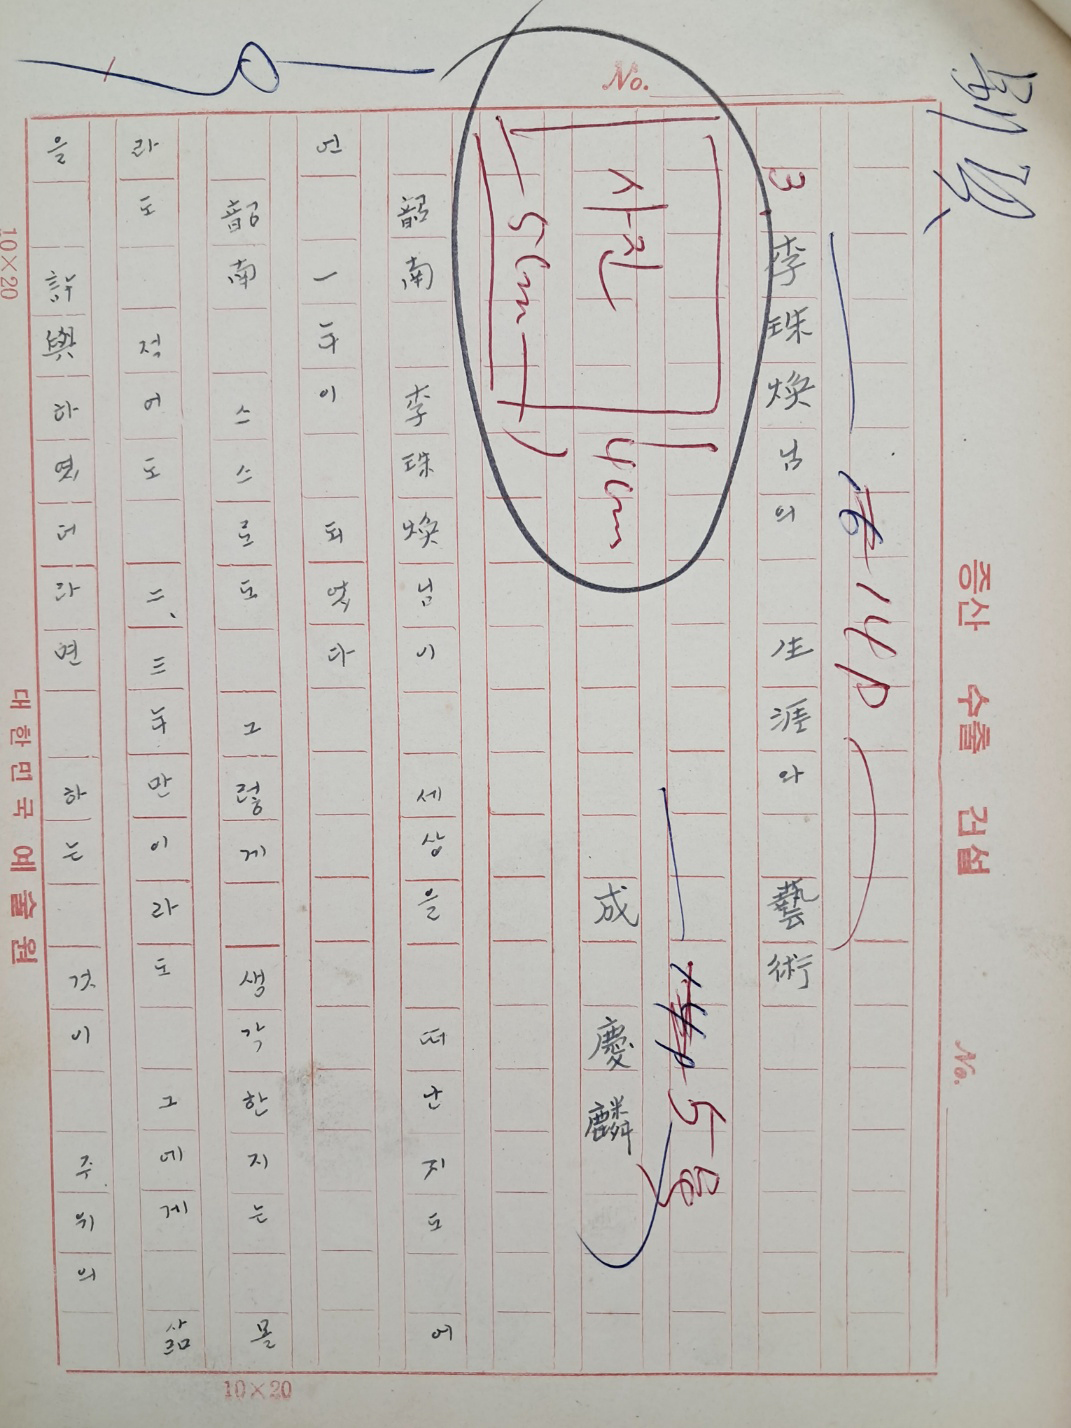 증산 수출 건설
No.
No.
14p
3. 李珠煥님의 生涯와 藝術
5호
成慶麟
사진
4cm
5cm
韶南 李珠煥님이 세상을 떠난지도 어
언 一年이 되었다
韶南 스스로도 그렇게 생각한지는 몰
라도 적어도 二、三年만이라도 그에게 삶
을 許與하였더라면 하는 것이 주위의
10×20
10×20
대한민국 예술원